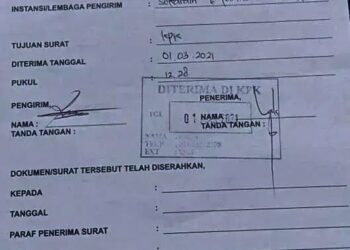 INSTANSI/LEMBAGA PENGIRIM :
TUJUAN SURAT : KPK
DITERIMA TANGGAL : 01.03.2021
PUKUL : 12.28
PENGIRIM,
NAMA :
TANDA TANGAN :
DITERIMA DI KPK
PENERIMA,
TGL
01
NAMA
TANDA TANGAN :
TELP
EXT
DOKUMEN/SURAT TERSEBUT TELAH DISERAHKAN,
KEPADA :
TANGGAL :
PARAF PENERIMA SURAT :